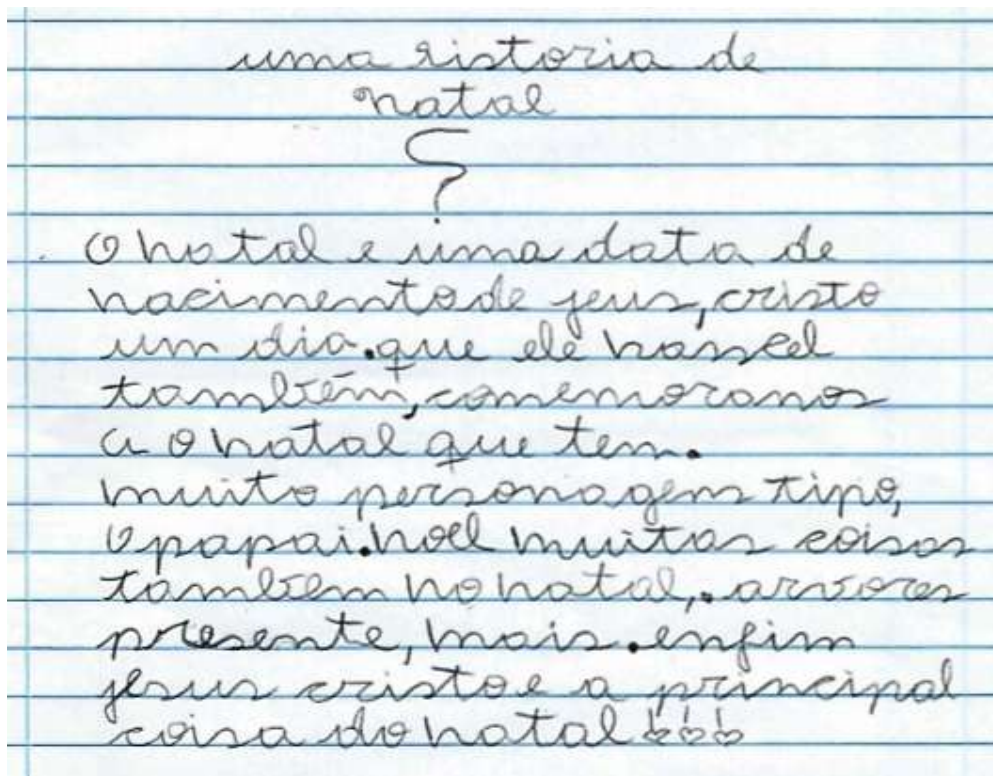 uma ristoria de
natal
?
O natal e uma data de
nacimento de jeus, cristo
um dia. que ele nasceel
também, comemoranos
a o natal que tem.
muito personagem tipo,
o papai. noel muitas coisas
tambem no natal,. arvores
presente, mais. enfim
jesus cristo e a principal
coisa do natal